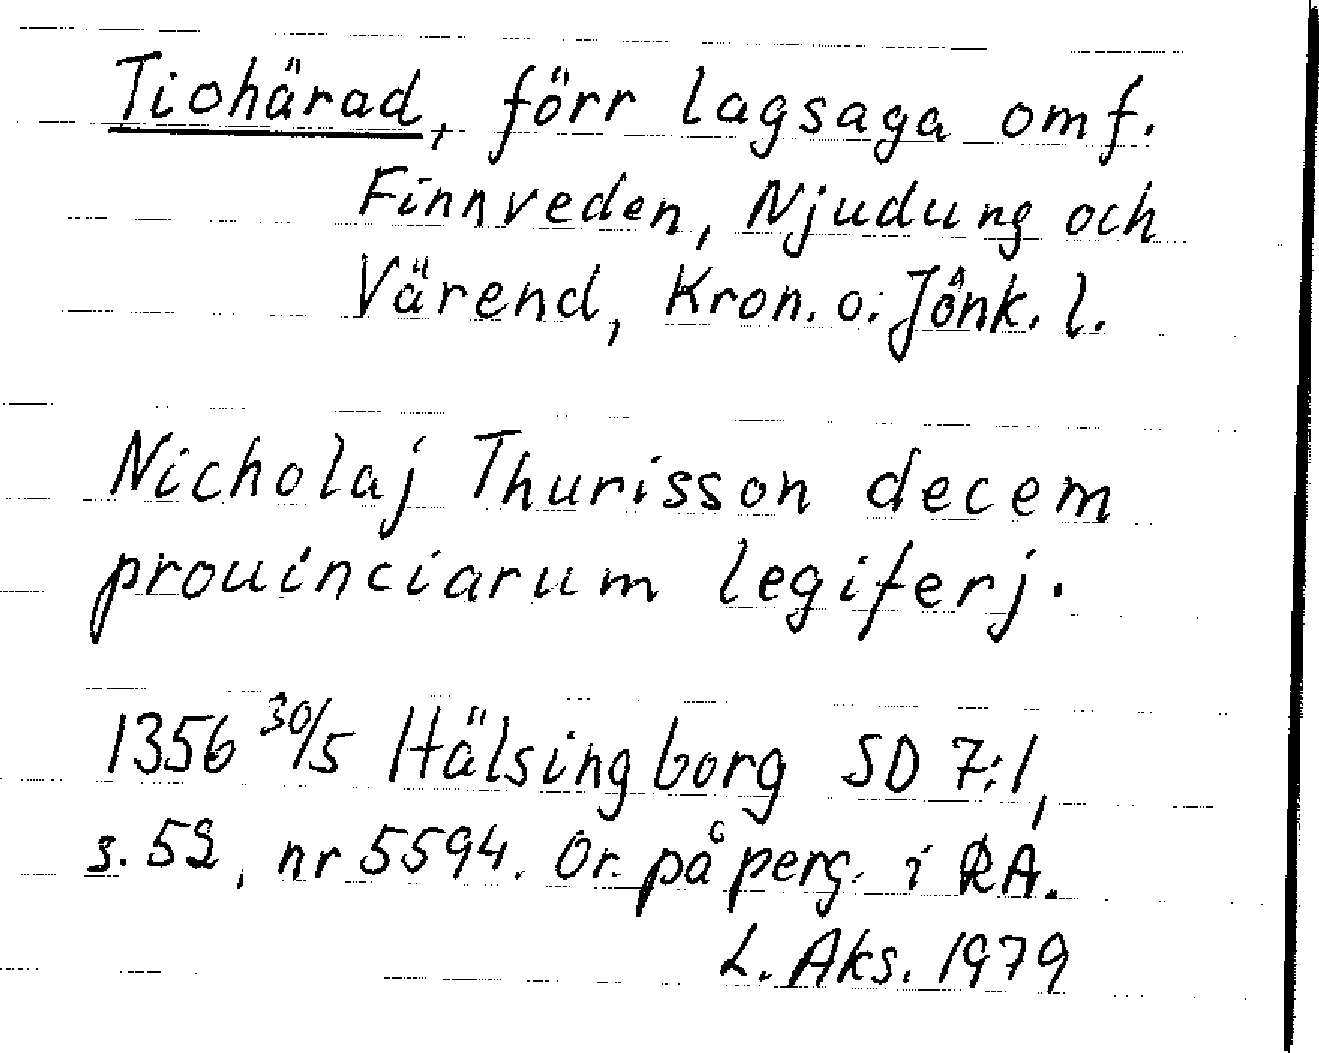 Tiohärad, förr lagsaga omf.
Finnveden, Njudung och
Värend, Kron. o. Jönk. l.
Nicholaj Thurisson decem
prouinciarum legiferj.
1356 30/5 Hälsingborg SD 7:1,
s. 52, nr 5594. Or. på perg. i RA.
L. Aks. 1979